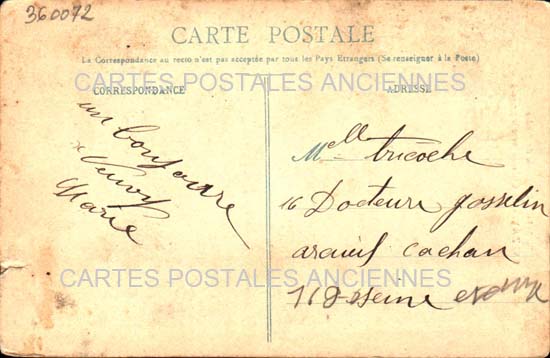 360072
CARTE POSTALE
La Correspondance au recto n'est pas acceptée par tous les Pays Etrangers (Se renseigner à la Poste)
CARTES POSTALES ANCIENNES
CORRESPONDANCE
un bonjour
Marie
ADRESSE
Melle tricoche
16 Docteure gosselin
arceuil cachan
seine
CARTES POSTALES ANCIENNES